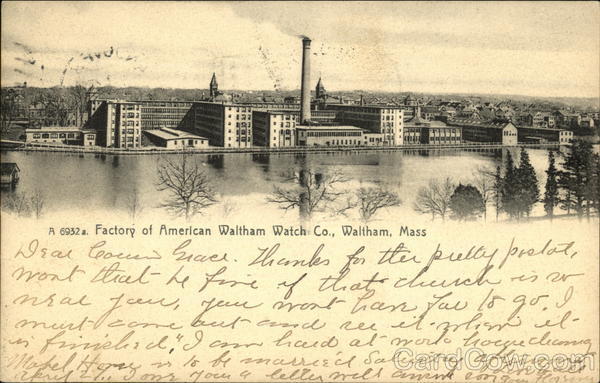 A 6932a. Factory of American Waltham Watch Co., Waltham, Mass
Dear Cousin Grace. Thanks for the pretty postal,
wont that be fine if that church is so
near you, you wont have far to go. I
must come out and see it when it
is finished. I am hard at work housecleaning
Mabel is to be married
I owe you a letter will
CardCow.com